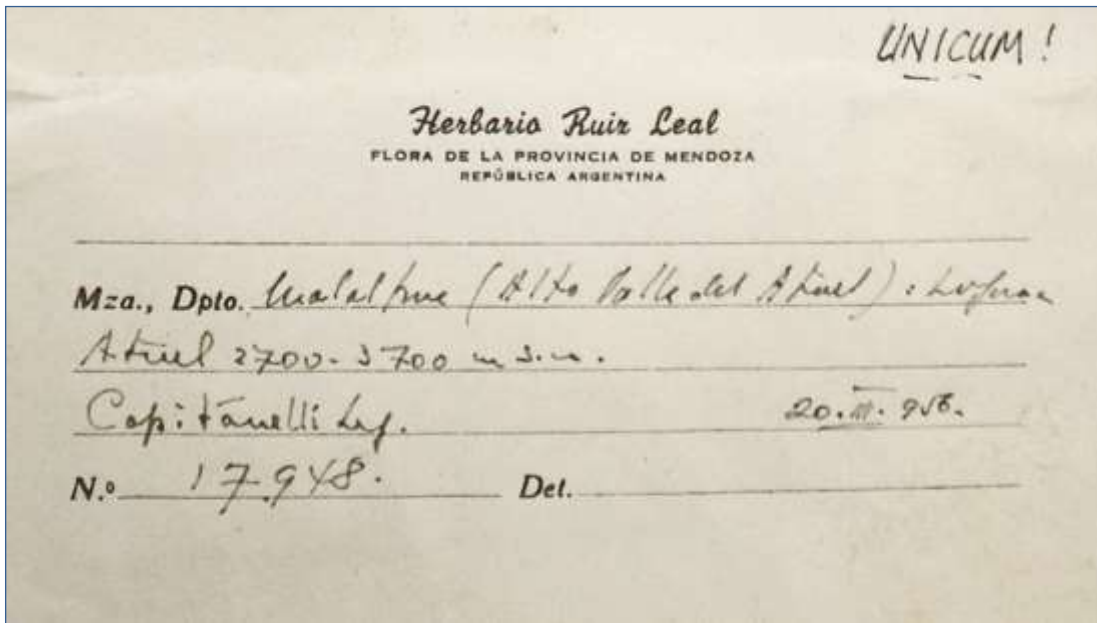 UNICUM!
Herbario Ruiz Leal
FLORA DE LA PROVINCIA DE MENDOZA
REPÚBLICA ARGENTINA
Mza., Dpto. Malalhue (Alto Valle del Atuel): Laguna
Atuel 2700-3700 m s.m.
Capitanelli Leg. 20.III.956.
N.º 17.948. Det.